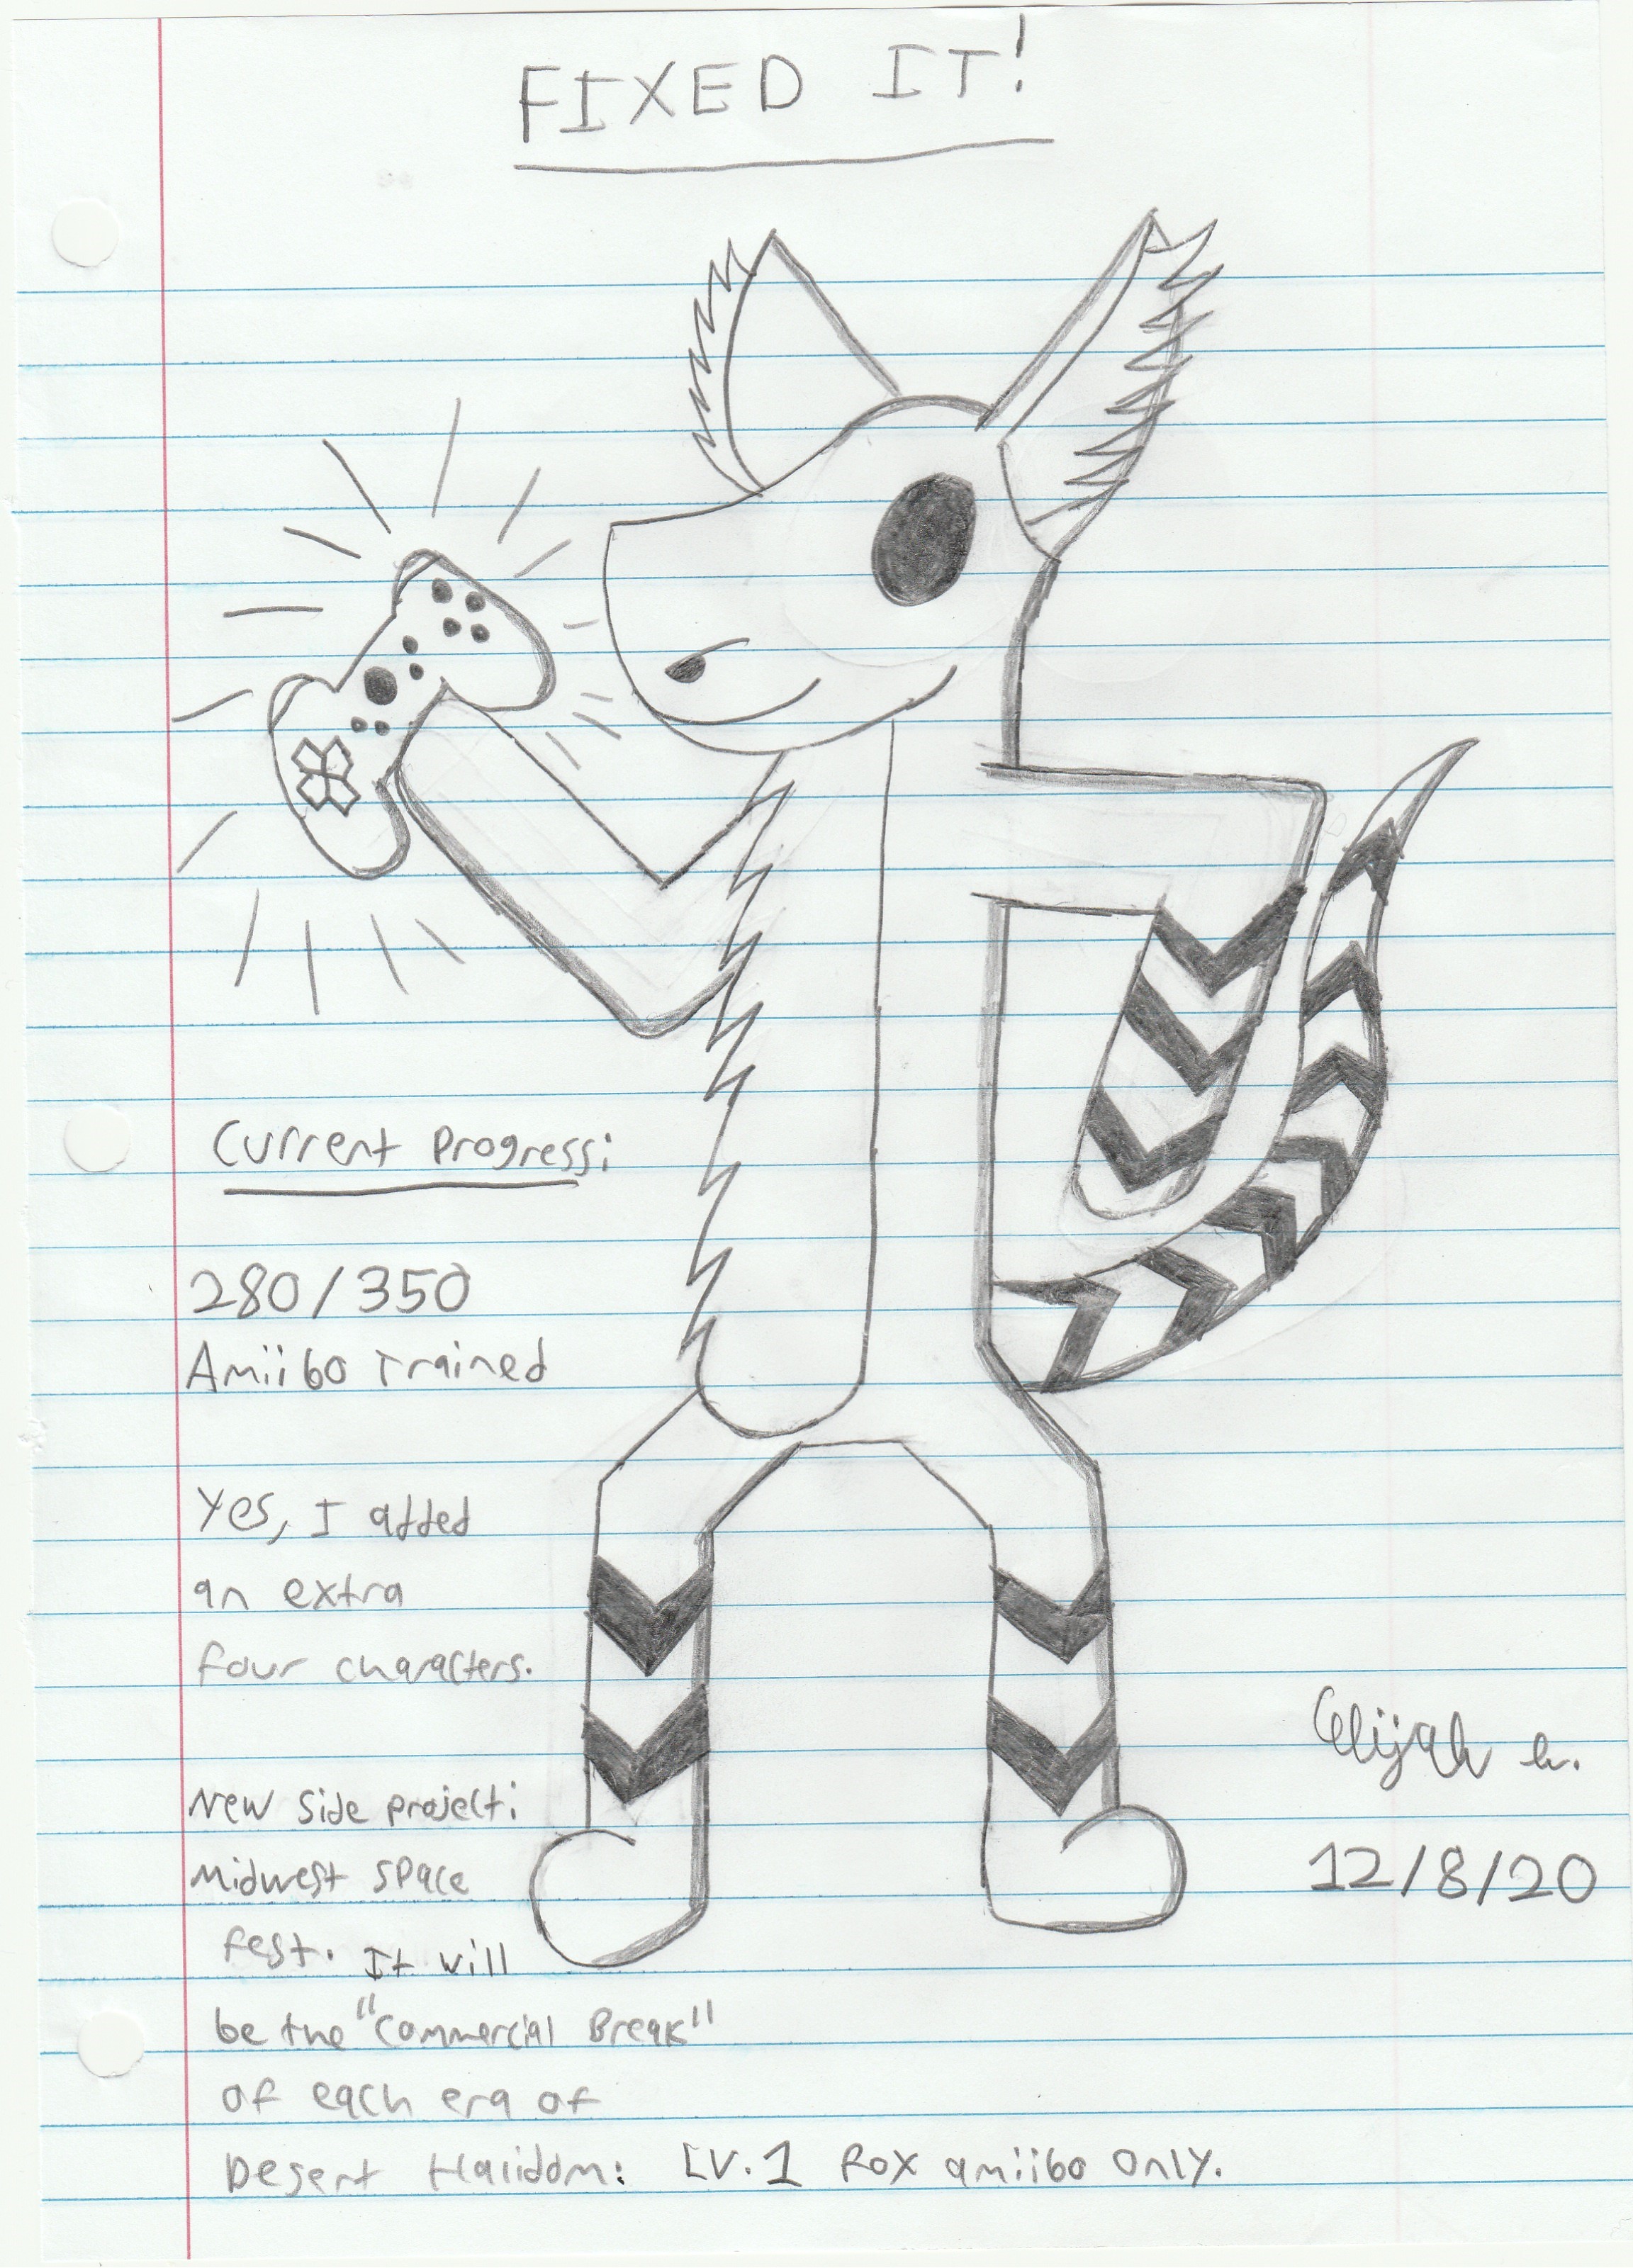 FIXED IT!
Current Progress:
280/350
Amiibo Trained
Yes, I added
an extra
four characters.
New side project:
Midwest space
fest. It will
be the "Commercial Break"
of each era of
Desert Halidom: LV.1 Fox amiibo only.
Elijah
12/8/20